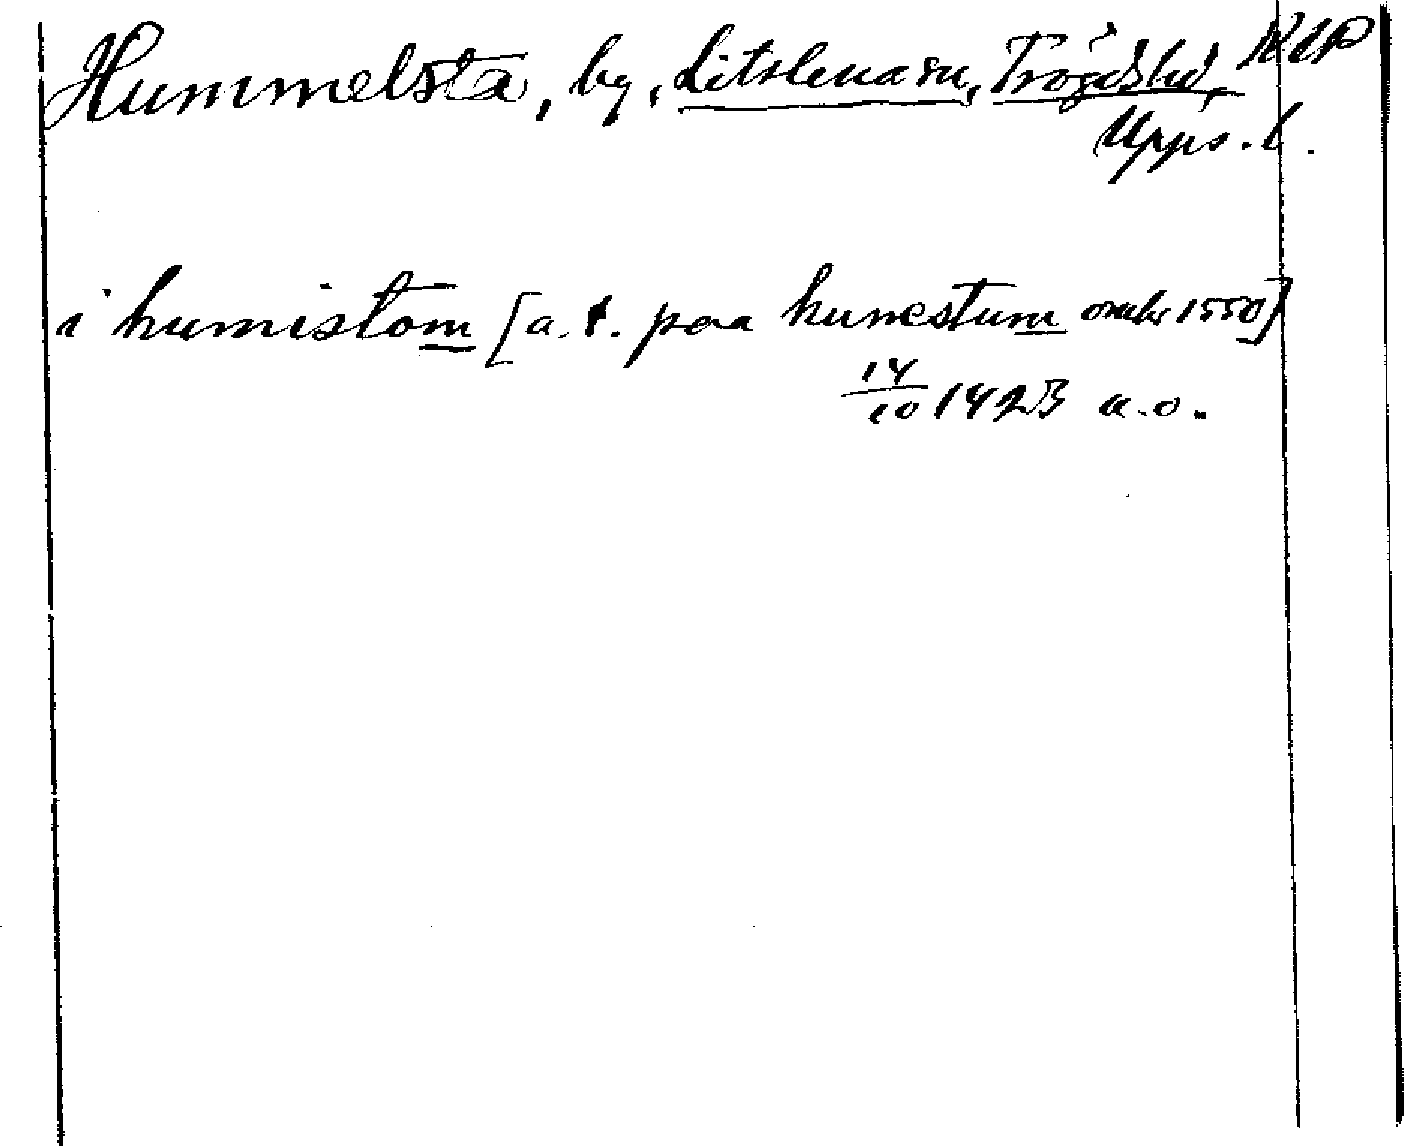 Hummelsta, by, Litslena sn, Trögds hd, KUP
Upps. l.
i humistom [a. t. paa humestum omkr 1550]
14/10 1423 a.o.